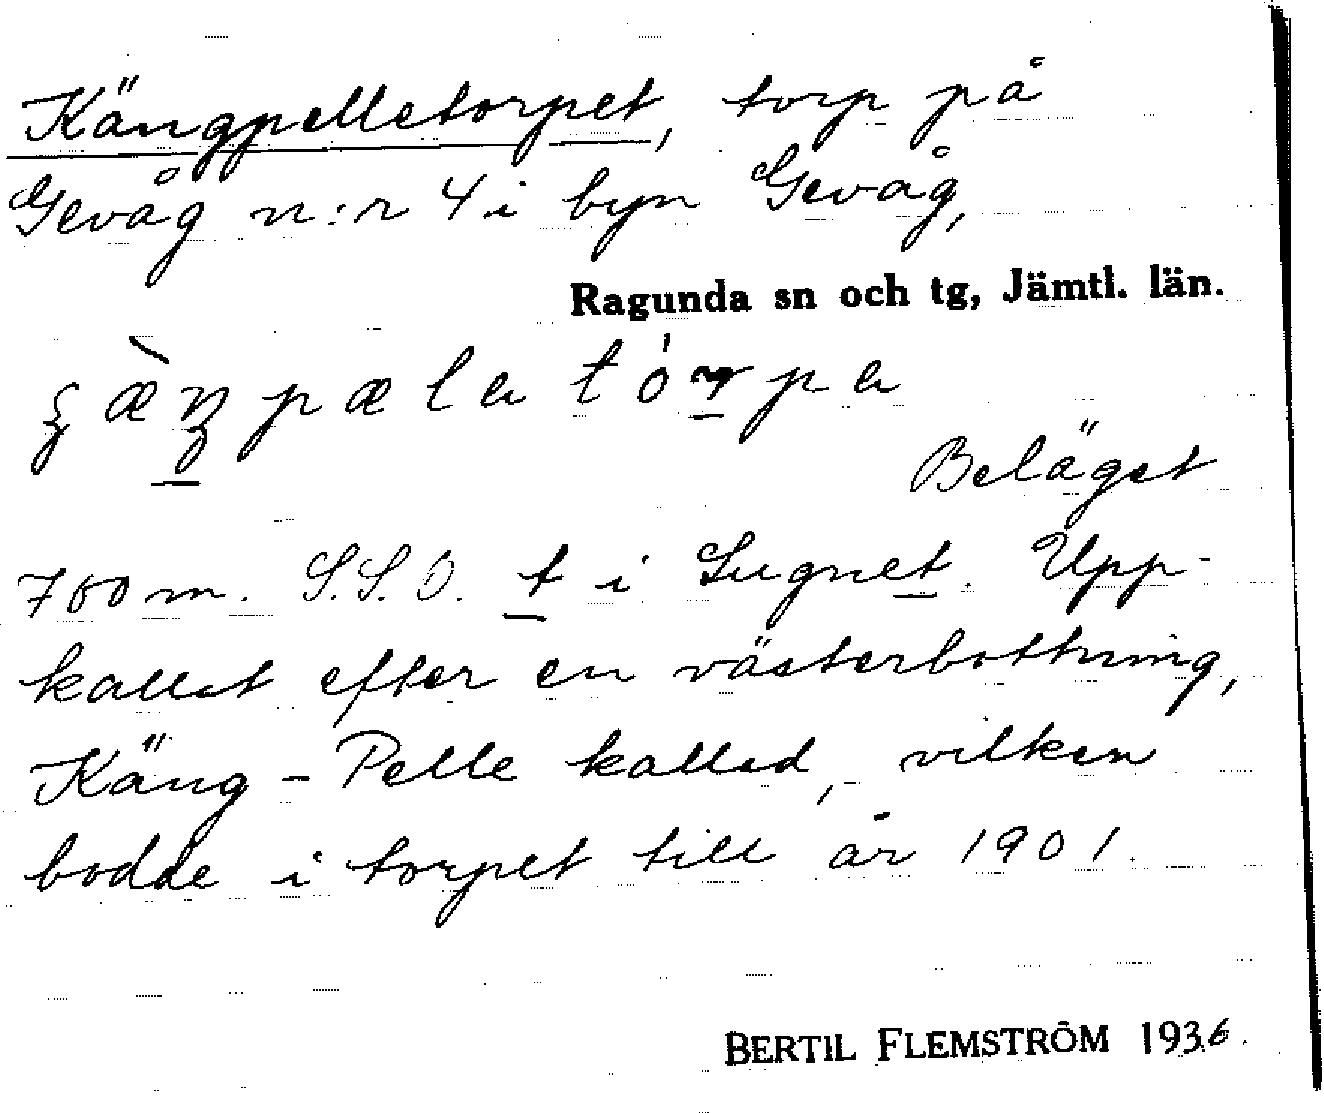 Kängpelletorpet, torp på
Gevåg n:r 4 i byn Gevåg,
Ragunda sn och tg, Jämtl. län.
Beläget
700 m. S.S.O. t i Lugnet. Upp-
kallat efter en västerbottning,
Käng-Pelle kallad, vilken
bodde i torpet till år 1901.
BERTIL FLEMSTRÖM 1936.